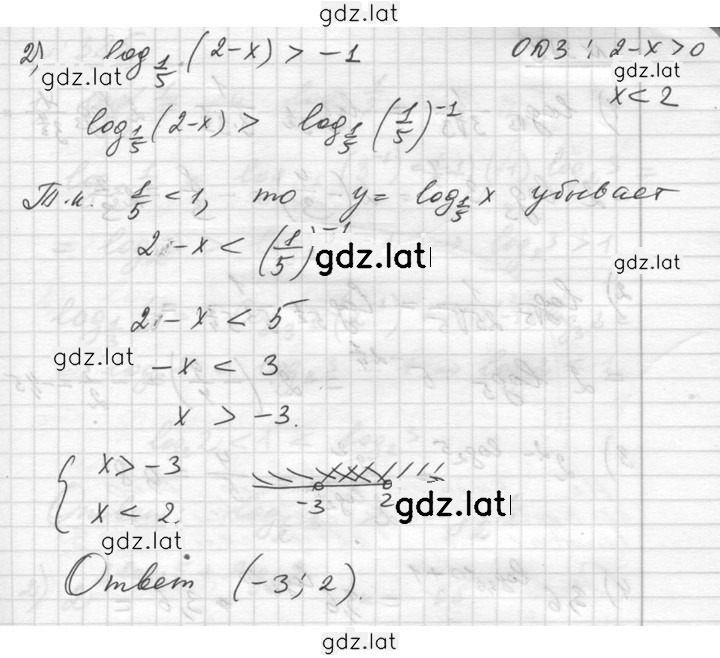 gdz.lat
2) log_{1/5} (2-x) > -1 ОДЗ: 2-x > 0
gdz.lat gdz.lat
x < 2
log_{1/5} (2-x) > log_{1/5} (1/5)^{-1}
Т.к. 1/5 < 1, то y = log_{1/5} x убывает
2-x < (1/5)^{-1}
gdz.lat gdz.lat
2-x < 5
gdz.lat
-x < 3
x > -3.
{ x > -3
x < 2.
-3 2
gdz.lat
gdz.lat
Ответ (-3; 2).
gdz.lat